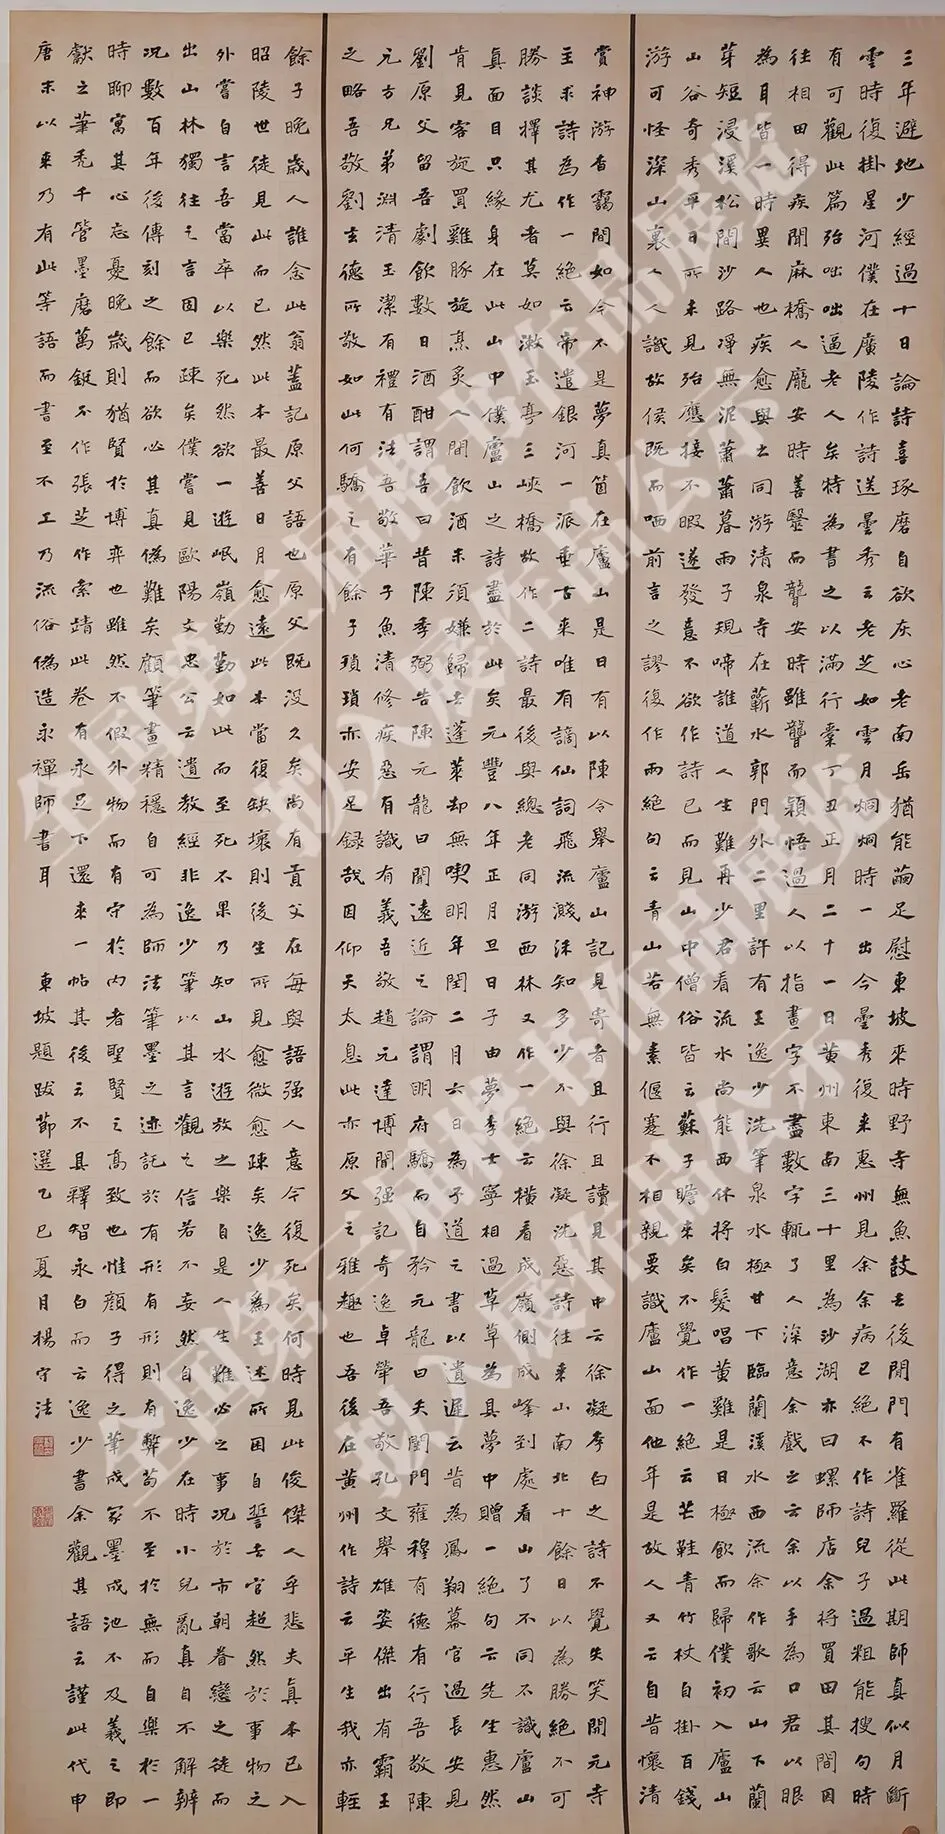 三年避地少經過十日論詩喜琢磨自欲灰心老南岳猶能繭足慰東坡來時野寺無魚鼓去後閒門有雀羅從此期師真似月斷
雲時復掛星河僕在廣陵作詩送曇秀云老芝如雲月炯炯時一出今曇秀復來惠州見余余病已絕不作詩兒子過粗能搜句時
有可觀此篇殆咄咄逼老人矣特為書之以滿行橐丁丑正月二十一日黃州東南三十里為沙湖亦曰螺師店余將買田其間因
往相田得疾聞麻橋人龐安時善醫而聾安時雖聾而穎悟過人以指畫字不盡數字輒了人深意余戲之云余以手為口君以眼
為耳皆一時異人也疾愈與之同游清泉寺在蘄水郭門外二里許有王逸少洗筆泉水極甘下臨蘭溪水西流余作歌云山下蘭
芽短浸溪松間沙路淨無泥蕭蕭暮雨子規啼誰道人生難再少君看流水尚能西休將白髮唱黃雞是日極飲而歸僕初入廬山
山谷奇秀平日所未見殆應接不暇遂發意不欲作詩已而見山中僧俗皆云蘇子瞻來矣不覺作一絕云芒鞋青竹杖自掛百錢
游可怪深山裏人人識故侯既而哂前言之謬復作兩絕句云青山若無素偃蹇不相親要識廬山面他年是故人又云自昔懷清
賞神游杳靄間如今不是夢真箇在廬山是日有以陳令舉廬山記見寄者且行且讀見其中云徐凝李白之詩不覺失笑開元寺
主求詩為作一絕云帝遣銀河一派垂古來唯有謫仙詞飛流濺沫知多少不與徐凝洗惡詩往來山南北十餘日以為勝絕不可
勝談擇其尤者莫如漱玉亭三峽橋故作二詩最後與總老同游西林又作一絕云橫看成嶺側成峰到處看山了不同不識廬山
真面目只緣身在此山中僕廬山之詩盡於此矣元豐八年正月旦日子由夢李士寧相過草草為具夢中贈一絕句云先生惠然
肯見客旋買雞豚旋烹炙人間飲酒未須嫌歸去蓬萊却無喫明年閏二月六日為予道之書以遺遲云昔為鳳翔幕官過長安見
劉原父留吾劇飲數日酒酣謂吾曰昔陳季弼告陳元龍曰聞遠近之論謂明府驕而自矜元龍曰夫閨門雍穆有德有行吾敬陳
元方兄弟淵清玉潔有禮有法吾敬華子魚清修疾惡有識有義吾敬趙元達博聞强記奇逸卓犖吾敬孔文舉雄姿傑出有霸王
之略吾敬劉玄德所敬如此何驕之有餘子瑣瑣亦安足録哉因仰天太息此亦原父之雅趣也吾後在黃州作詩云平生我亦輕
餘子晚歲人誰念此翁蓋記原父語也原父既沒久矣尚有貢父在每與語强人意今復死矣何時見此俊傑人乎悲夫真本已入
昭陵世徒見此而已然此本最善日月愈遠此本當復缺壞則後生所見愈微愈疎矣逸少為王述所困自誓去官超然於事物之
外嘗自言吾當卒以樂死然欲一遊岷嶺勤勤如此而至死不果乃知山水遊放之樂自是人生難必之事況於市朝眷戀之徒而
出山林獨往之言固已疎矣僕嘗見歐陽文忠公云遺教經非逸少筆以其言觀之信若不妄然自逸少在時小兒亂真自不解辨
况數百年後傳刻之餘而欲必其真偽難矣顧筆畫精穩自可為師法筆墨之迹託於有形有形則有弊苟不至於無而自樂於一
時聊寓其心忘憂晚歲則猶賢於博弈也雖然不假外物而有守於內者聖賢之高致也惟顏子得之筆成冢墨成池不及羲之即
獻之筆禿千管墨磨萬鋌不作張芝作索靖此卷有永足下還來一帖其後云不具釋智永白而云逸少書余觀其語云謹此代申
唐末以來乃有此等語而書至不工乃流俗偽造永禪師書耳 東坡題跋節選乙巳夏月楊守法
全国第三届楷书作品展览
拟入展作品公示
全国第三届楷书作品展览
拟入展作品公示